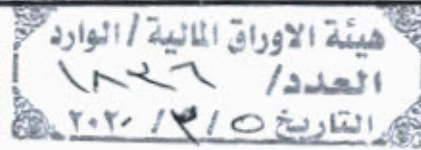 هيئة الاوراق المالية / الوارد
العدد / ١٨٣٦
التاريخ ٥ / ٣ / ٢٠٢٠